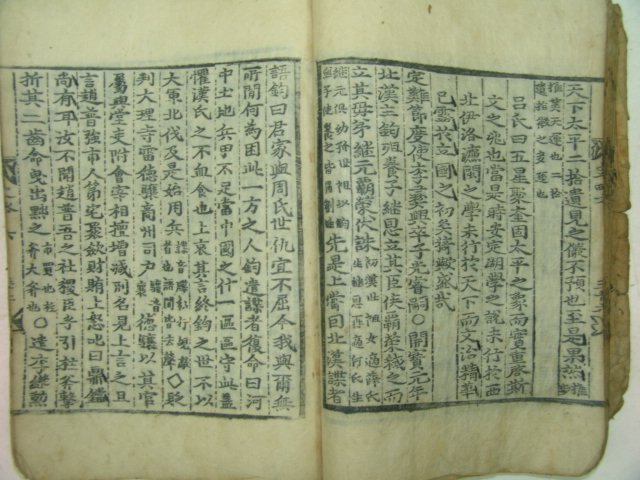 天下太平二拾遺見之儀不預也至是果然
呂氏曰五星聚奎固太平之象而實重啓斯
文之兆也當是時安定湖學之說未行於西
北伊洛濂關之學未行於天下而文治精華
已露於立國之初矣猗歟盛哉
定難節度使李彝興卒子光睿嗣○開寶元年
北漢主鈞殂養子繼恩立其臣侯霸榮弑之而
立其母弟繼元霸榮伏誅
先是上嘗因北漢諜者
語鈞曰君家與周氏世仇宜不屈今我與爾無
所間何為困此一方之人鈞遣諜者復命曰河
中土地兵甲不足當中國之什一區區守此盖
懼漢氏之不血食也上哀其言終鈞之世不以
大軍北伐及是始用兵○貶
判大理寺雷德驤商州司户德驤以其官
屬與堂吏附會宰相擅增减刑名見上言之且
言趙普強市人第宅聚歛財賄上怒叱曰鼎鐺
尚有耳汝不聞趙普吾之社稷臣乎引拄斧擊
折其二齒命曳出黜之○遼